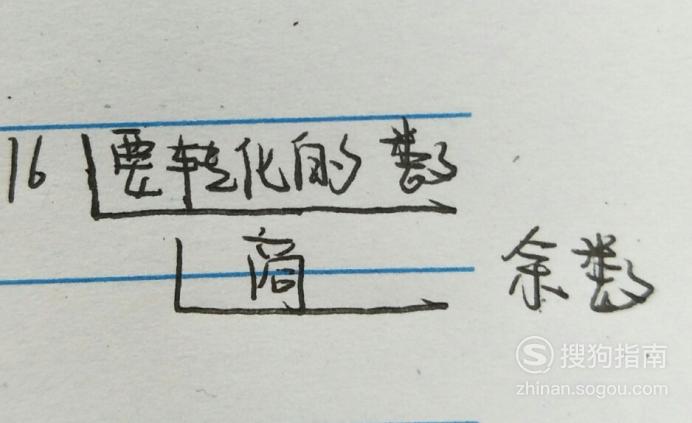 16 要转化的数
商 余数
搜狗指南
zhinan.sogou.com